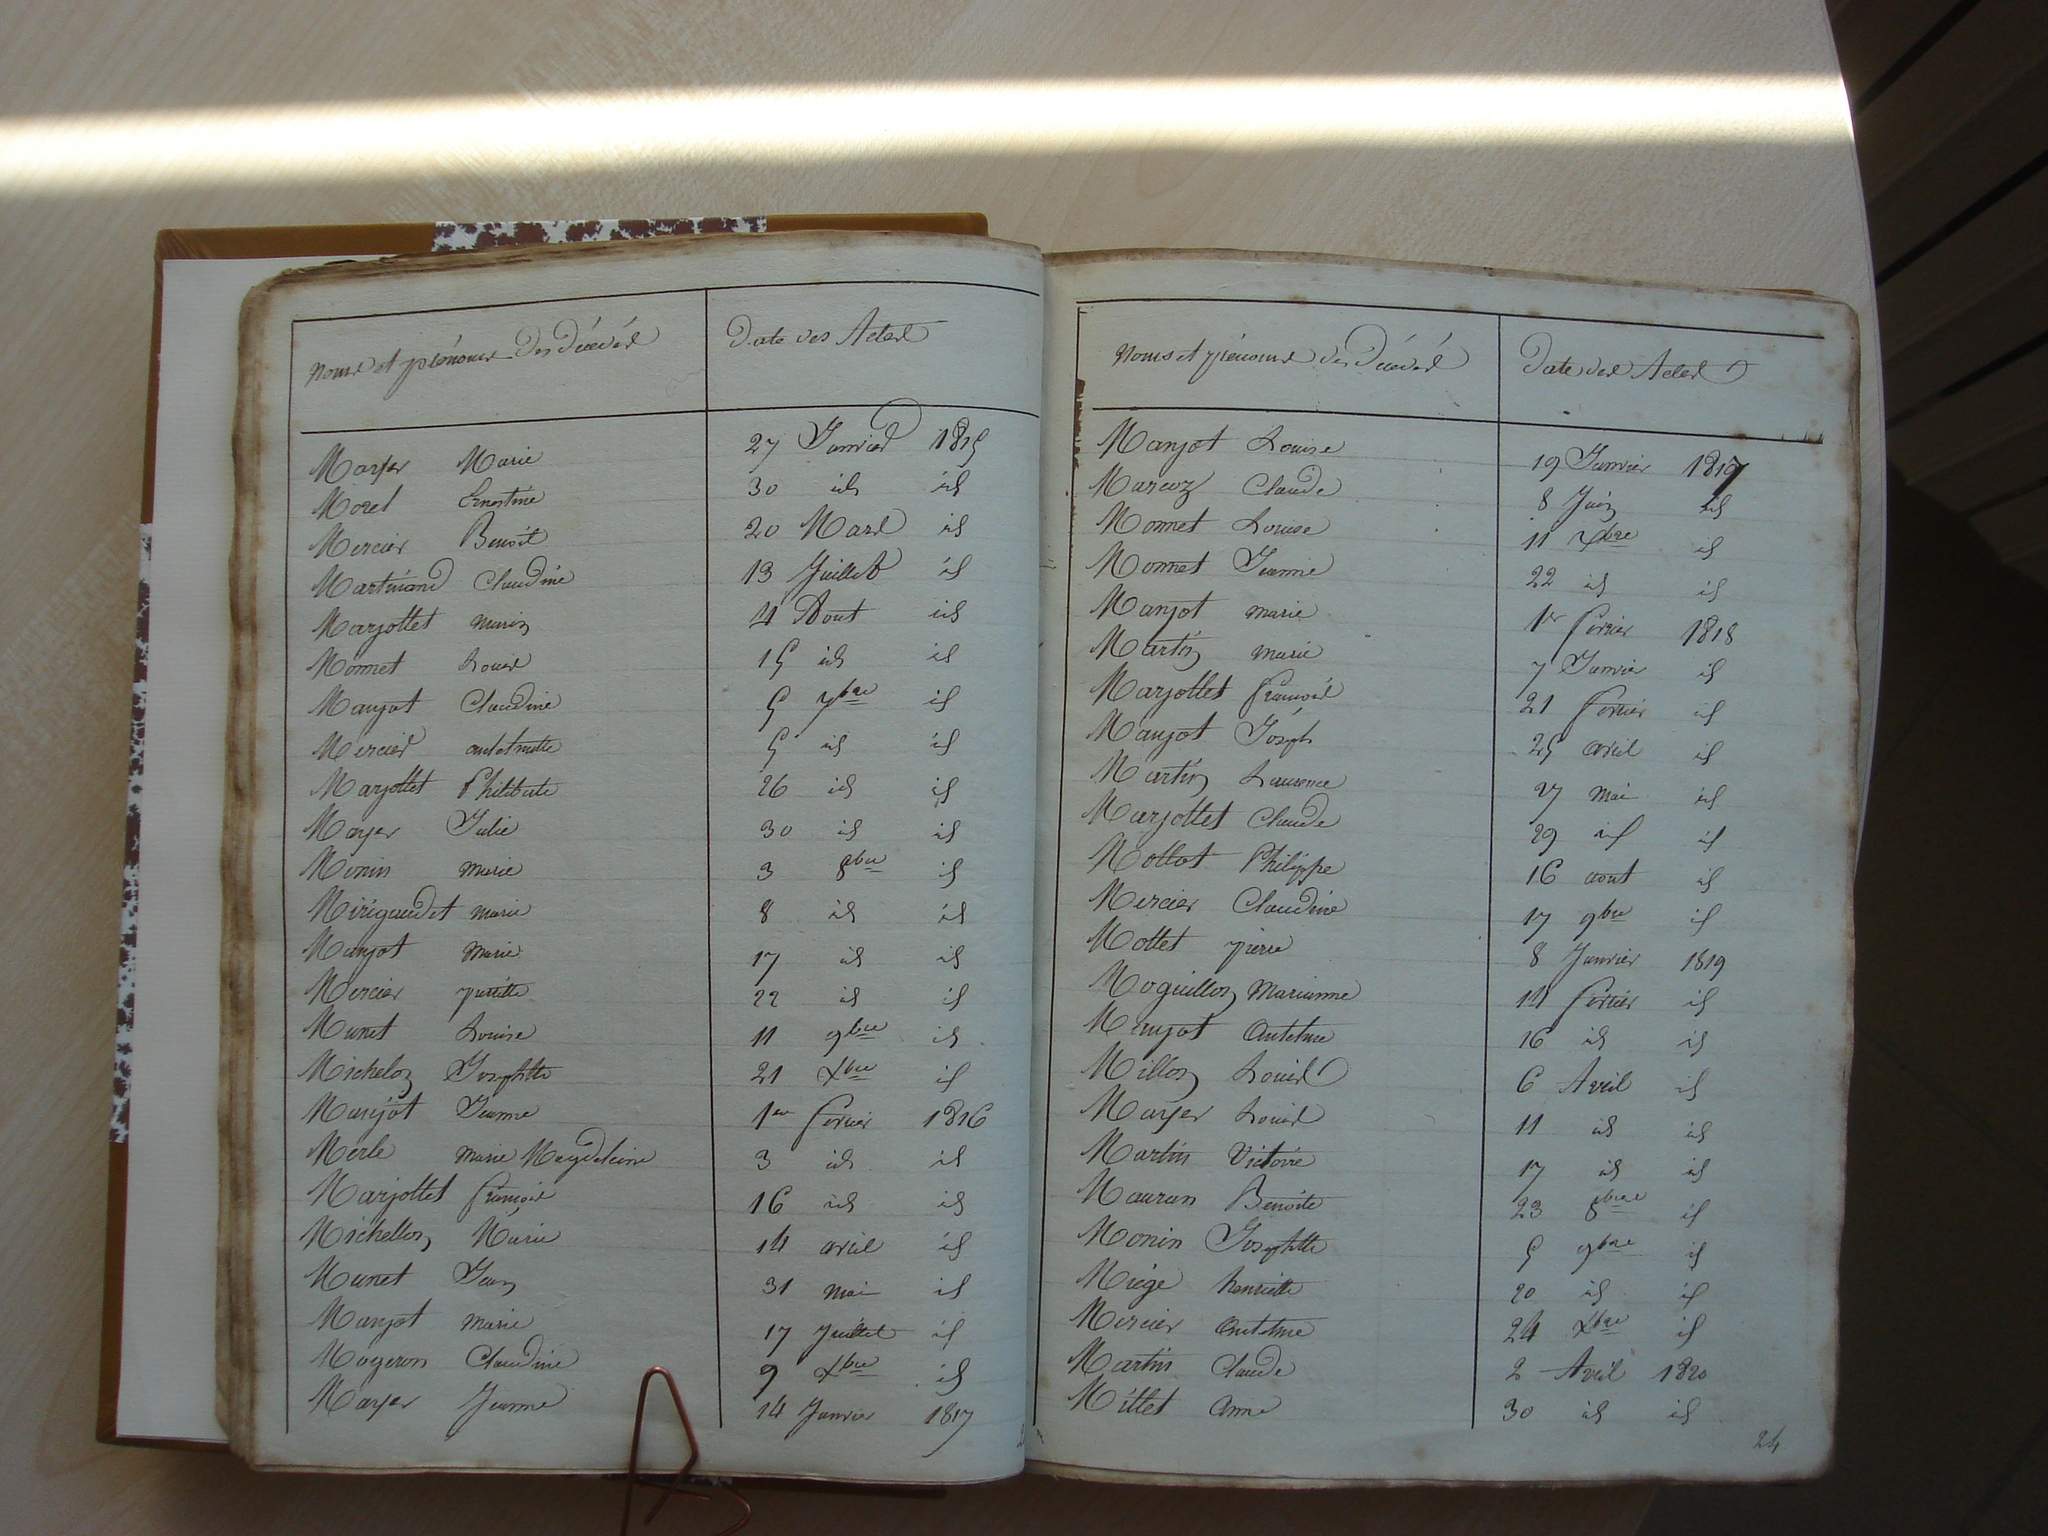 Noms et prénoms des Décédés
Date des Actes
Mayer Marie 27 Janvier 1815
Morel Ernestine 30 id id
Mercier Benoît 20 Mars id
Martinand Claudine 13 Juillet id
Marjollet Marin 4 Aout id
Monnet Louis 15 id id
Manjot Claudine 5 7bre id
Mercier 5 id id
Marjollet Philiberte 26 id id
Mayer Julie 30 id id
Monin Marie 3 8bre id
Mirigaudet marie 8 id id
Manjot Marie 17 id id
Mercier 22 id id
Munet Louise 11 9bre id
Michelon Josephtte 21 Xbre id
Manjot Jeanne 1er fevrier 1816
Merle Marie Magdeleine 3 id id
Marjollet françois 16 id id
Michellon Marie 14 avril id
Munet Jean 31 Mai id
Manjot Marie 17 Juillet id
Mogeron Claudine 9 Xbre id
Mayer Jeanne 14 Janvier 1817
Noms et prénoms des Décédés
Date des Actes
Manjot Louise 19 Janvier 1817
Marcoz Claude 8 Juin id
Monnet Louise 11 Xbre id
Monnet Jeanne 22 id id
Manjot marie 1er fevrier 1818
Martin marie 7 Janvier id
Marjollet françois 21 fevrier id
Manjot Joseph 25 avril id
Martin Laurence 27 mai id
Marjollet Claude 29 id id
Mollot Philippe 16 aout id
Mercier Claudine 17 9bre id
Mottet pierre 8 Janvier 1819
Moguillon Marianne 14 fevrier id
Manjot Antelme 16 id id
Millon Louis 6 Avril id
Mayer Louis 11 id id
Martin Victoire 17 id id
Mauran Benoite 23 8bre id
Monin Josephtte 5 9bre id
Miège henriette 20 id id
Mercier Antelme 24 Xbre id
Martin Claude 2 Avril 1820
Millet Anne 30 id id
24